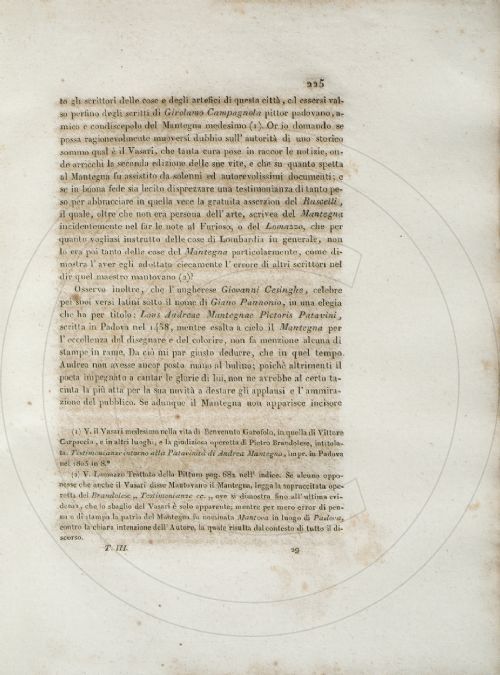 225
to gli scrittori delle cose e degli artefici di questa città, ed essersi val-
so perfino degli scritti di Girolamo Campagnola pittor padovano, a-
mico e condiscepolo del Mantegna medesimo (1). Or io domando se
possa ragionevolmente muoversi dubbio sull' autorità di uno storico
sommo qual è il Vasari, che tanta cura pose in raccor le notizie, on-
de arricchì la seconda edizione delle sue vite, e che su quanto spetta
al Mantegna fu assistito da solenni ed autorevolissimi documenti; e
se in buona fede sia lecito disprezzare una testimonianza di tanto pe-
so per abbracciare in quella vece la gratuita asserzion del Ruscelli,
il quale, oltre che non era persona dell' arte, scrivea del Mantegna
incidentemente nel far le note al Furioso, o del Lomazzo, che per
quanto vogliasi instrutto delle cose di Lombardia in generale, non
lo era poi tanto delle cose del Mantegna particolarmente, come di-
mostra l' aver egli adottato ciecamente l' errore di altri scrittori nel
dir quel maestro mantovano (2)?
Osservo inoltre, che l' ungherese Giovanni Cesinghe, celebre
pei suoi versi latini sotto il nome di Giano Pannonio, in una elegia
che ha per titolo: Laus Andreae Mantegnae Pictoris Patavini,
scritta in Padova nel 1458, mentre esalta a cielo il Mantegna per
l' eccellenza del disegnare e del colorire, non fa menzione alcuna di
stampe in rame. Da ciò mi par giusto dedurre, che in quel tempo
Andrea non avesse ancor posto mano al bulino; poichè altrimenti il
poeta impegnato a cantar le glorie di lui, non ne avrebbe al certo ta-
ciuta la più atta per la sua novità a destare gli applausi e l' ammira-
zione del pubblico. Se adunque il Mantegna non apparisce incisore
(1) V. il Vasari medesimo nella vita di Benvenuto Garofolo, in quella di Vittore
Carpaccio, e in altri luoghi, e la giudiziosa operetta di Pietro Brandolese, intitola-
ta. Testimonianze intorno alla Patavinità di Andrea Mantegna, impr. in Padova
nel 1805 in 8.°
(2) V. Lomazzo Trattato della Pittura pag. 682 nell' indice. Se alcuno oppo-
nesse che anche il Vasari disse Mantovano il Mantegna, legga la sopraccitata ope-
retta del Brandolese „ Testimonianze ec. „ ove si dimostra fino all' ultima evi-
denza, che lo sbaglio del Vasari è solo apparente; mentre per mero error di pen-
na o di stampa la patria del Mantegna fu nominata Mantova in luogo di Padova,
contro la chiara intenzione dell' Autore, la quale risulta dal contesto di tutto il di-
scorso.
T. III. 29